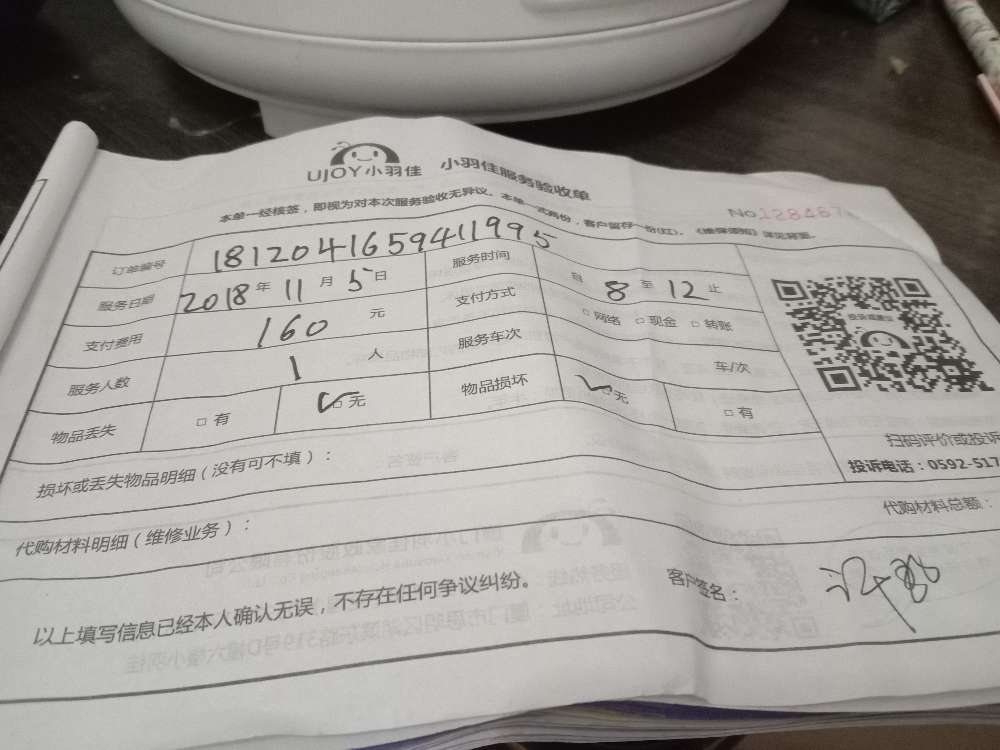 UJOY小羽佳 小羽佳服务验收单
本单一经核签，即视为对本次服务验收无异议。本单一式两份，客户留存一份(红)。《维保须知》详见背面。
No.128467
订单编号 1812041659411995
服务日期 2018年11月5日 服务时间 自8至12止
支付费用 160元 支付方式 □网络 □现金 □转账
服务人数 1人 服务车次 车/次
物品丢失 □有 □无 物品损坏 □无 □有
扫码评价或投诉
投诉电话：0592-517
损坏或丢失物品明细（没有可不填）：
代购材料明细（维修业务）： 代购材料总额：
以上填写信息已经本人确认无误，不存在任何争议纠纷。 客户签名：